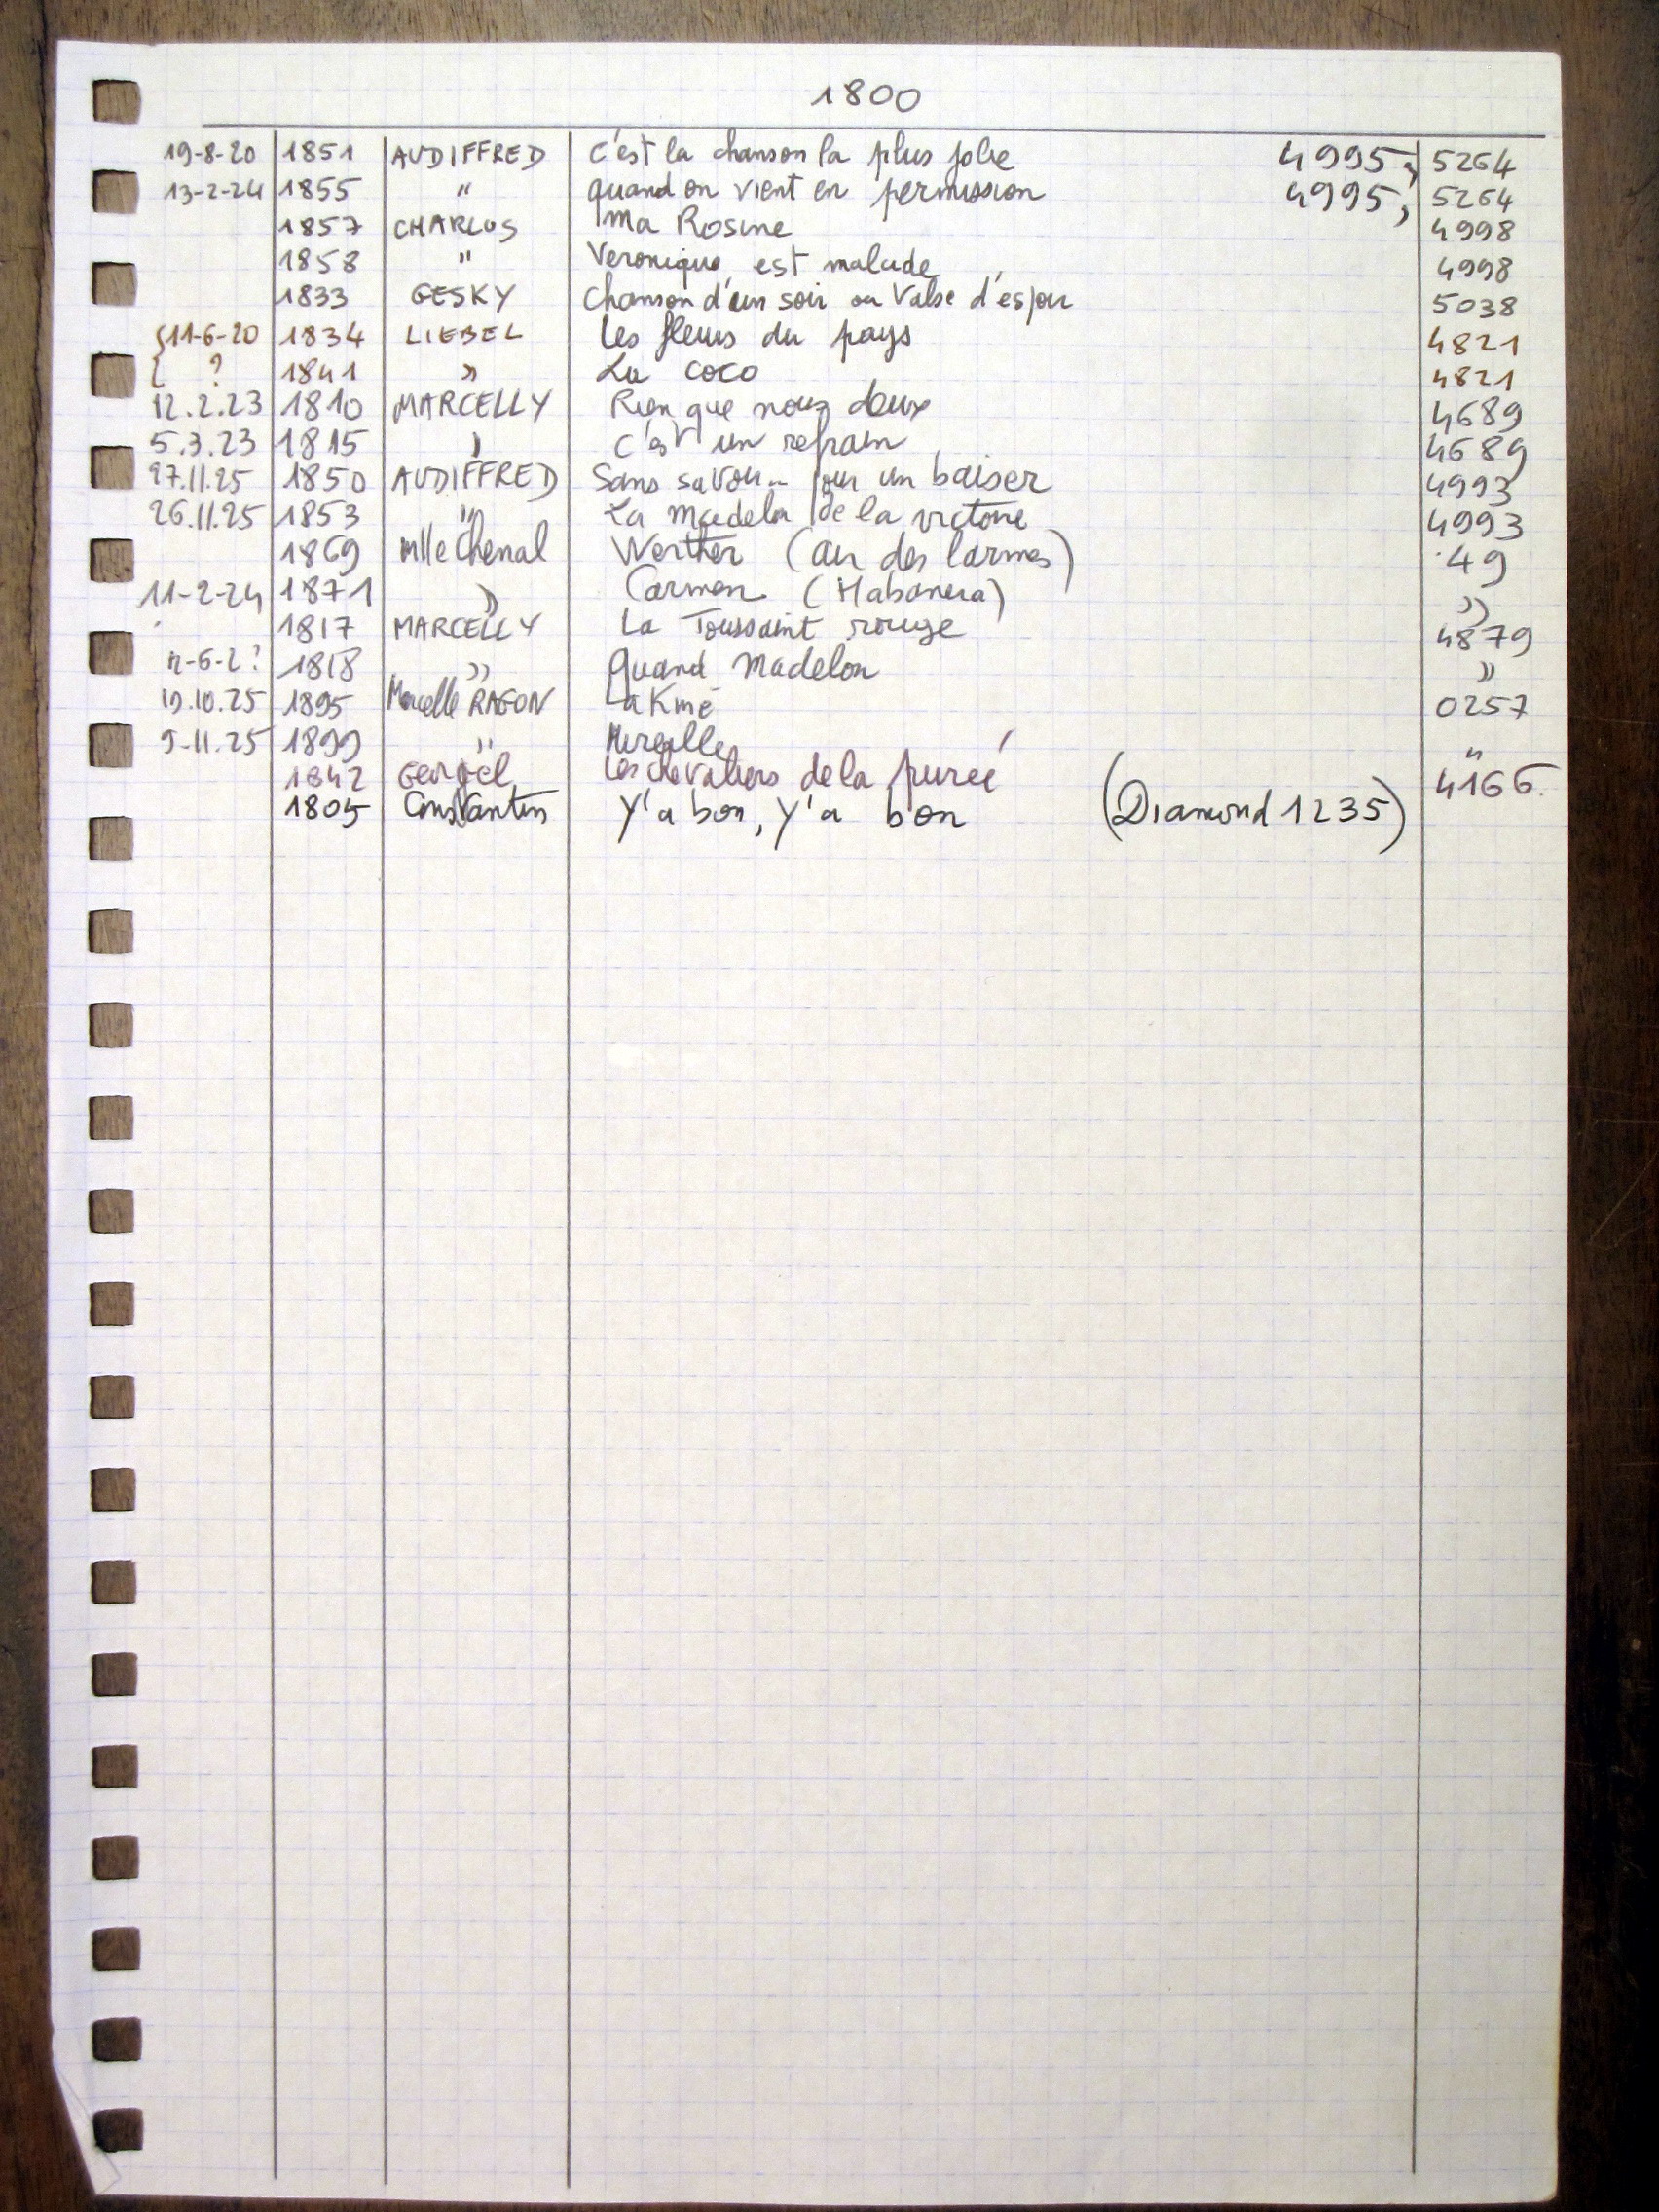 1800
19-8-20 1851 AUDIFFRED C'est la chanson la plus jolie 4995; 5264
13-2-24 1855 " quand on vient en permission 4995, 5264
1857 CHARLUS Ma Rosine 4998
1858 " Veronique est malade 4998
1833 GESKY Chanson d'un soir ou Valse d'espoir 5038
{11-6-20 1834 LIEBEL les fleurs du pays 4821
{ ? 1841 " La coco 4821
12.2.23 1810 MARCELLY Rien que nous deux 4689
5.3.23 1815 " C'est un refrain 4689
27.11.25 1850 AUDIFFRED Sans savoir.. pour un baiser 4993
26.11.25 1853 " La madelon de la victoire 4993
1869 Mlle Chenal Werther (air des larmes) 49
11-2-24 1871 " Carmen (Habanera) "
1817 MARCELLY La Toussaint rouge 4879
1818 " Quand Madelon "
19.10.25 1895 Marcelle RAGON Lakmé 0257
9-11.25 1899 " Mireille "
1842 Georgel Les chevaliers de la purée 4166
1805 Constantin Y'a bon, Y'a bon (Diamond 1235)